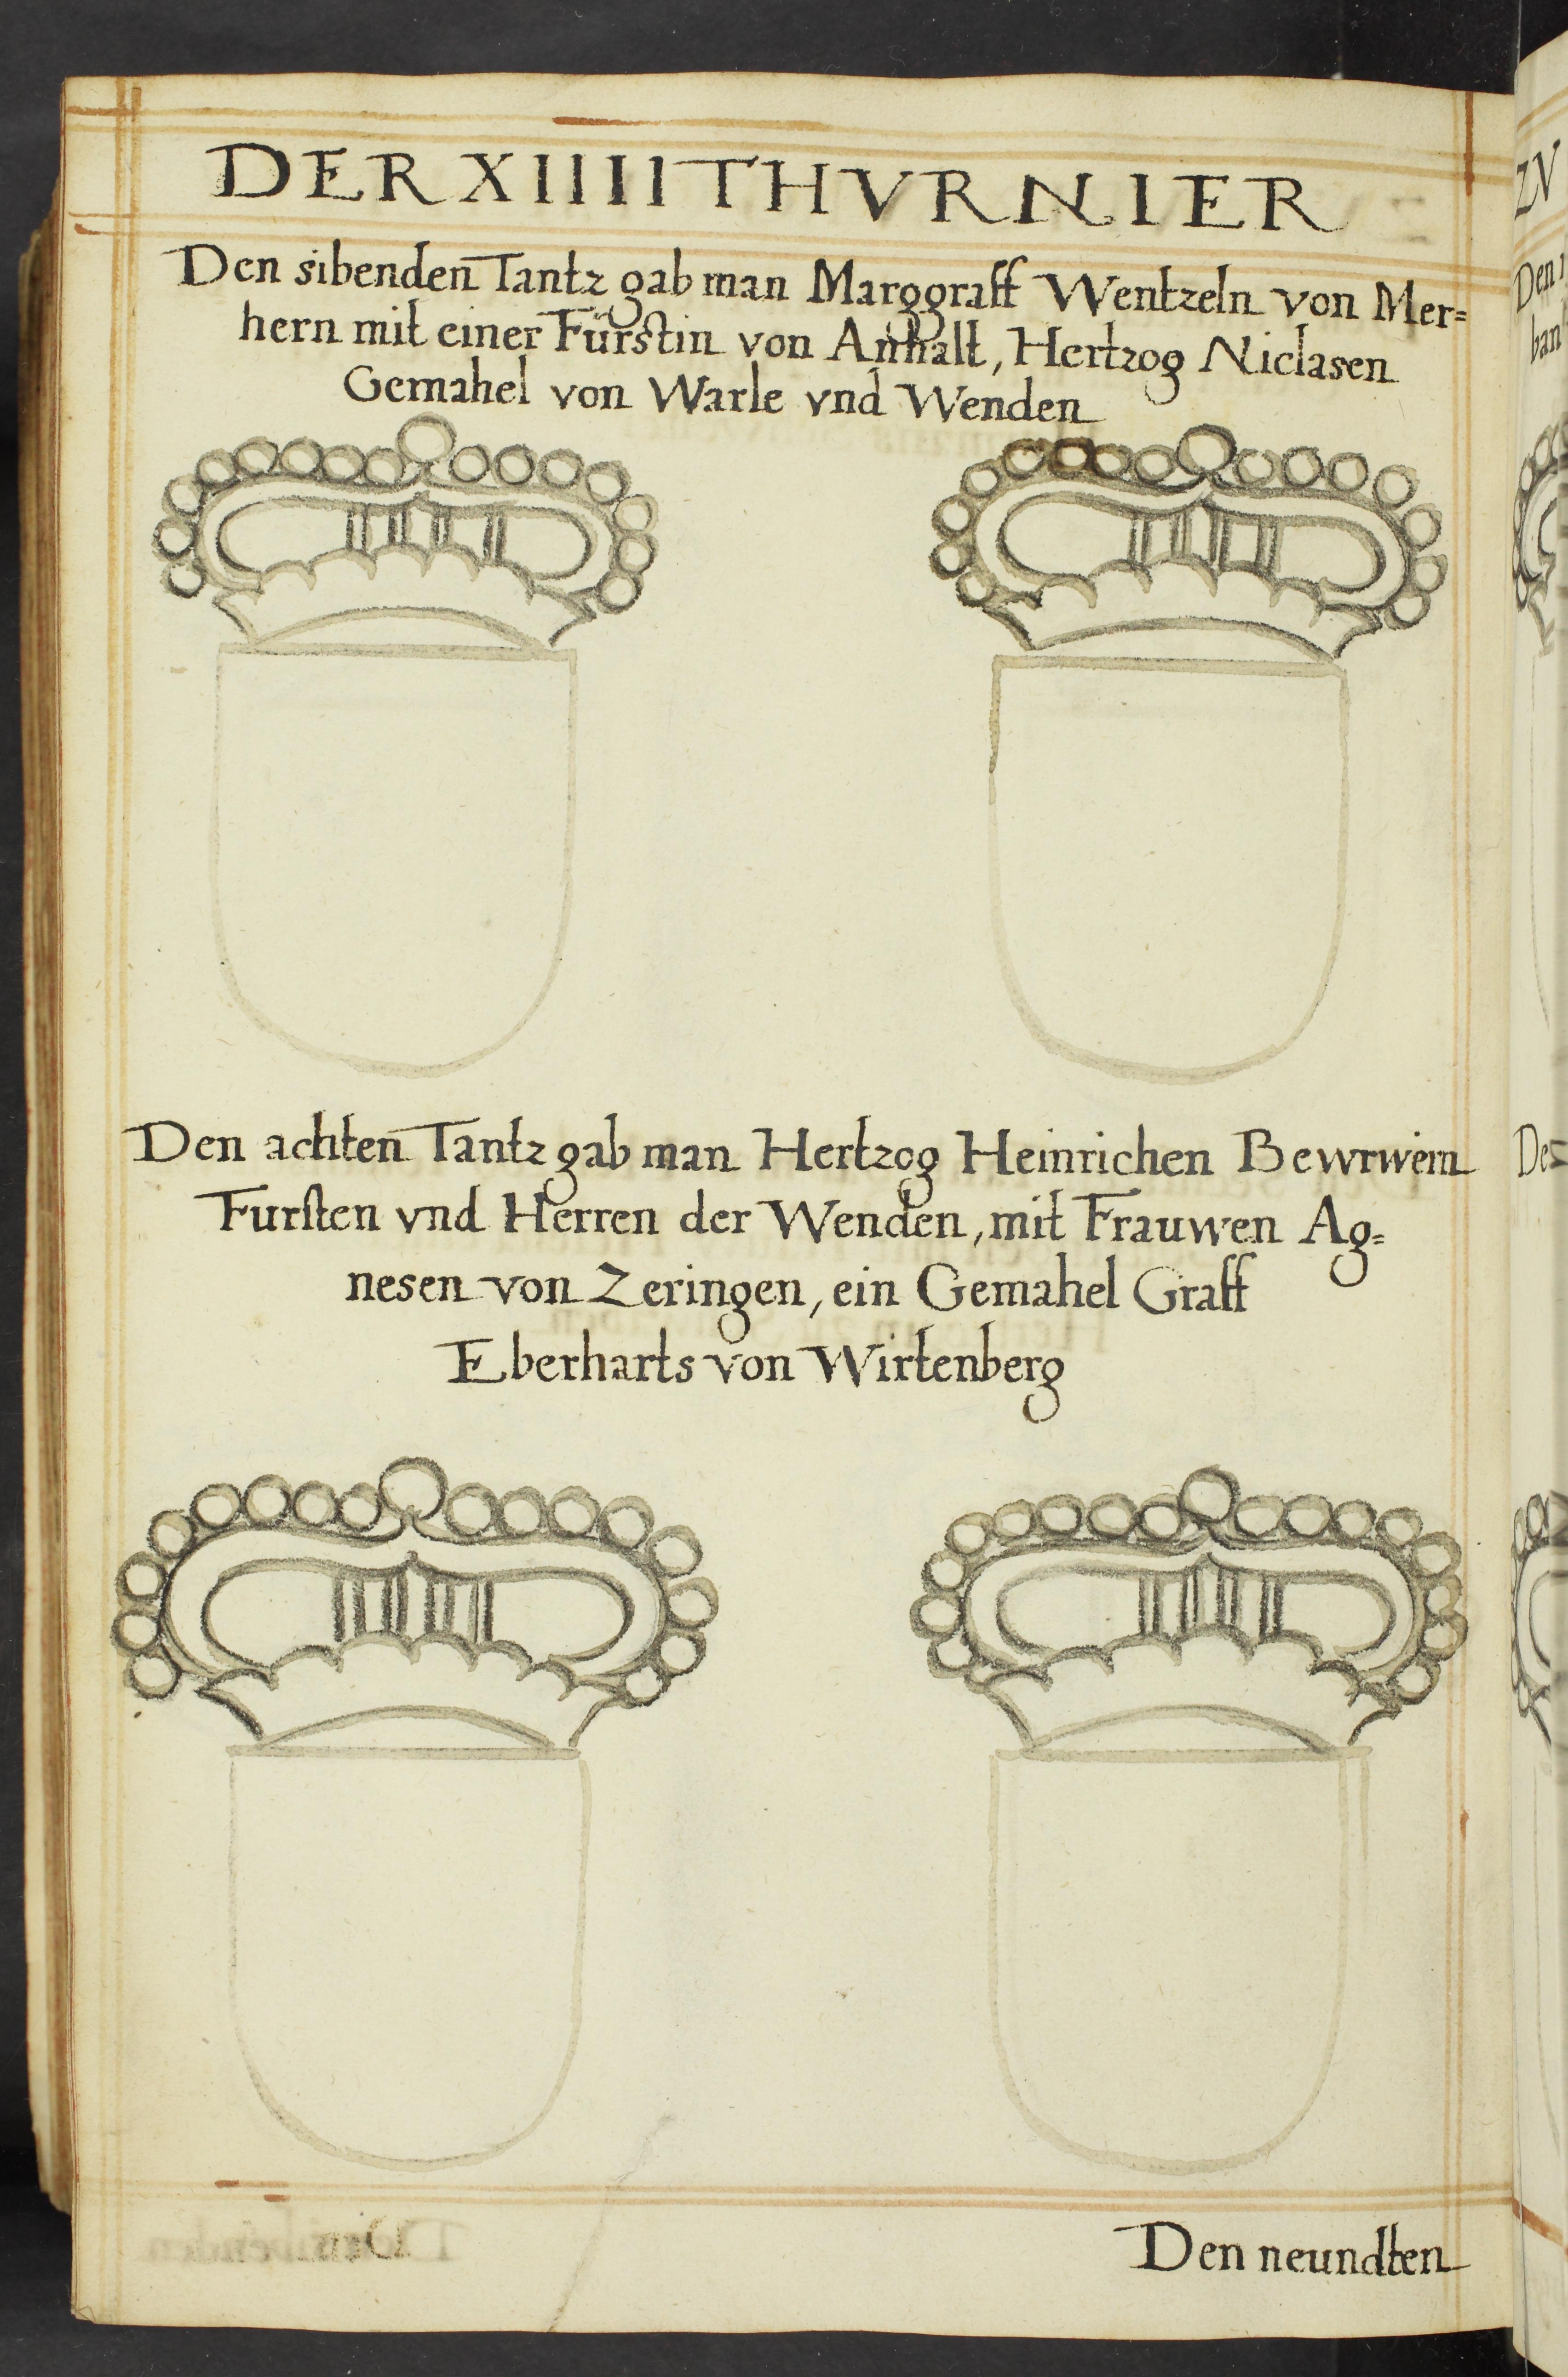 DER XIIIII THVRNIER
Den sibenden Tantz gab man Marggraff Wentzeln von Mer=
hern mit einer Fürstin von Anhalt, Hertzog Niclasen
Gemahel von Warle vnd Wenden
Den achten Tantz gab man Hertzog Heinrichen Bewrwein
Fursten vnd Herren der Wenden, mit Frauwen Ag=
nesen von Zeringen, ein Gemahel Graff
Eberharts von Wirtenberg
Den neundten
ZV